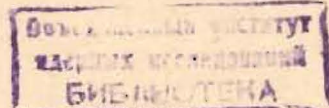 Объединенный институт
ядерных исследований
БИБЛИОТЕКА